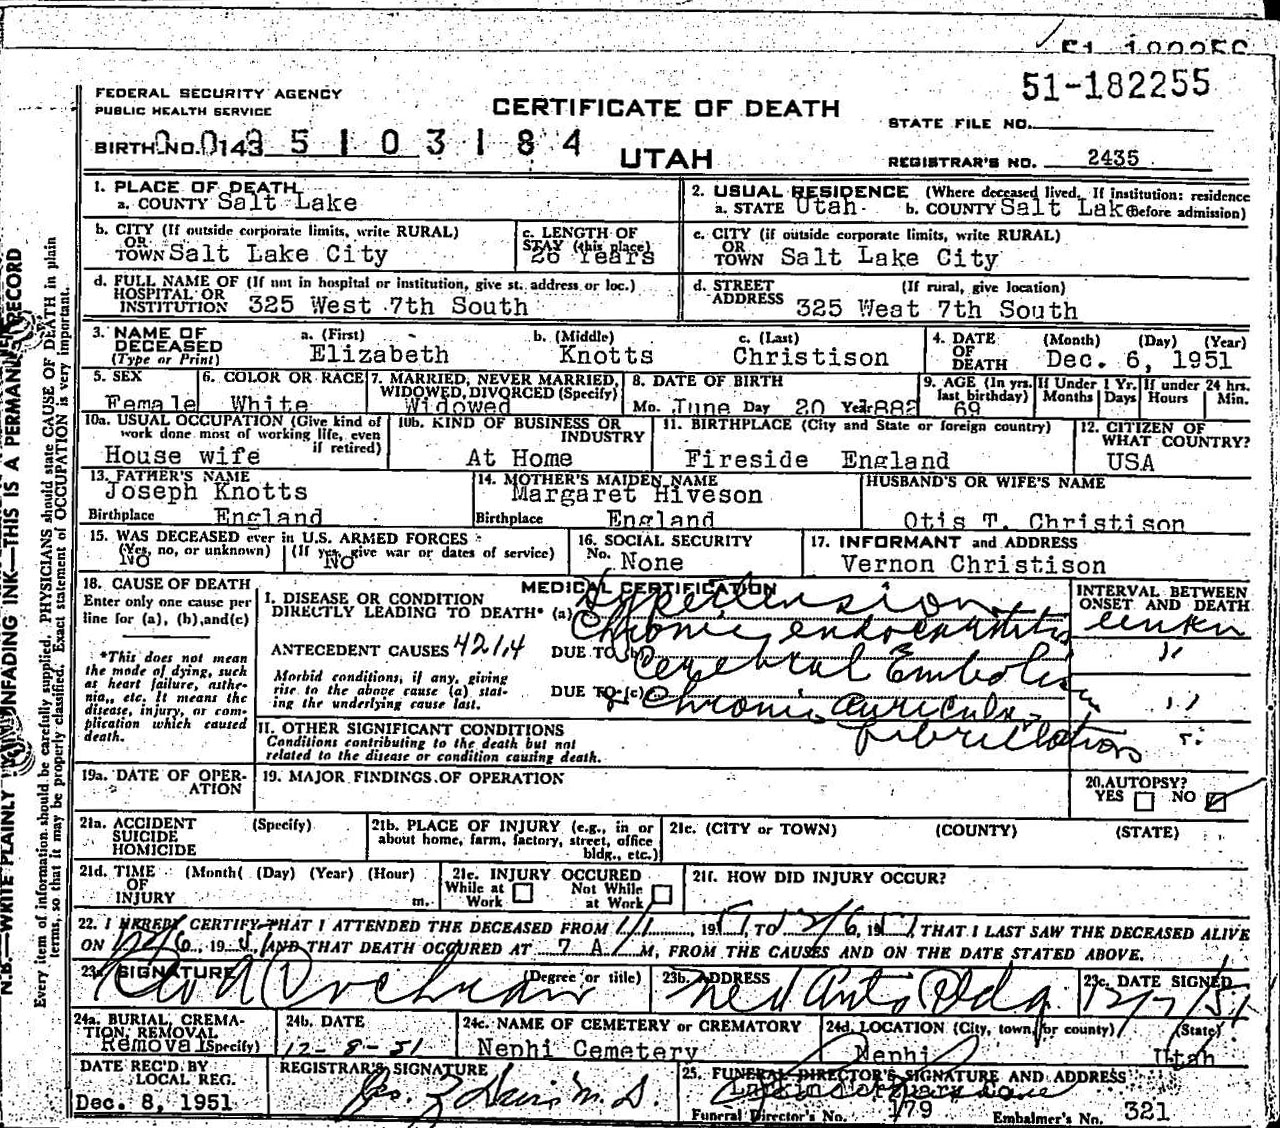 51-182255
FEDERAL SECURITY AGENCY
PUBLIC HEALTH SERVICE
CERTIFICATE OF DEATH
51-182255
STATE FILE NO.
BIRTH NO. 0143 5 1 0 3 1 8 4
UTAH
REGISTRAR'S NO. 2435
1. PLACE OF DEATH
a. COUNTY Salt Lake
2. USUAL RESIDENCE (Where deceased lived. If institution: residence
a. STATE Utah b. COUNTY Salt Lak before admission)
b. CITY (If outside corporate limits, write RURAL)
OR
TOWN Salt Lake City
c. LENGTH OF
STAY (this place)
26 Years
c. CITY (if outside corporate limits, write RURAL)
OR
TOWN Salt Lake City
d. FULL NAME OF (If not in hospital or institution, give st. address or loc.)
HOSPITAL OR
INSTITUTION 325 West 7th South
d. STREET (If rural, give location)
ADDRESS 325 West 7th South
3. NAME OF
DECEASED
(Type or Print)
a. (First) b. (Middle) c. (Last)
Elizabeth Knotts Christison
4. DATE
OF
DEATH
(Month) (Day) (Year)
Dec. 6, 1951
5. SEX
Female
6. COLOR OR RACE
White
7. MARRIED, NEVER MARRIED,
WIDOWED, DIVORCED (Specify)
Widowed
8. DATE OF BIRTH
Mo. June Day 20 Year 1882
9. AGE (In yrs.
last birthday)
69
If Under 1 Yr.
Months Days
If under 24 hrs.
Hours Min.
10a. USUAL OCCUPATION (Give kind of
work done most of working life, even
if retired)
House wife
10b. KIND OF BUSINESS OR
INDUSTRY
At Home
11. BIRTHPLACE (City and State or foreign country)
Fireside England
12. CITIZEN OF
WHAT COUNTRY?
USA
13. FATHER'S NAME
Joseph Knotts
Birthplace England
14. MOTHER'S MAIDEN NAME
Margaret Hiveson
Birthplace England
HUSBAND'S OR WIFE'S NAME
Otis T. Christison
15. WAS DECEASED ever in U.S. ARMED FORCES
(Yes, no, or unknown) (If yes, give war or dates of service)
NO NO
16. SOCIAL SECURITY
No. None
17. INFORMANT and ADDRESS
Vernon Christison
18. CAUSE OF DEATH
Enter only one cause per
line for (a), (b), and(c)
*This does not mean
the mode of dying, such
as heart failure, asthe-
nia, etc. It means the
disease, injury, or com-
plication which caused
death.
MEDICAL CERTIFICATION
I. DISEASE OR CONDITION
DIRECTLY LEADING TO DEATH* (a) Hypertension
Chronic endocarditis
ANTECEDENT CAUSES 421,4 DUE TO (b) Cerebral Embolism
Morbid conditions, if any, giving
rise to the above cause (a) stat-
ing the underlying cause last.
DUE TO (c) Chronic Auricular
fibrillation
II. OTHER SIGNIFICANT CONDITIONS
Conditions contributing to the death but not
related to the disease or condition causing death.
INTERVAL BETWEEN
ONSET AND DEATH
"
"
"
19a. DATE OF OPER-
ATION
19. MAJOR FINDINGS OF OPERATION
20. AUTOPSY?
YES NO
21a. ACCIDENT (Specify)
SUICIDE
HOMICIDE
21b. PLACE OF INJURY (e.g., in or
about home, farm, factory, street, office
bldg., etc.)
21c. (CITY or TOWN) (COUNTY) (STATE)
21d. TIME (Month( (Day) (Year) (Hour)
OF
INJURY m.
21e. INJURY OCCURED
While at Work Not While at Work
21f. HOW DID INJURY OCCUR?
22. I HEREBY CERTIFY THAT I ATTENDED THE DECEASED FROM 1/1, 1951, TO 12/6, 1951, THAT I LAST SAW THE DECEASED ALIVE
ON 12/6, 1951 AND THAT DEATH OCCURED AT 7 A. M, FROM THE CAUSES AND ON THE DATE STATED ABOVE.
23a. SIGNATURE (Degree or title)
23b. ADDRESS
Med Arts Bldg
23c. DATE SIGNED
12/7/51
24a. BURIAL, CREMA-
TION, REMOVAL
Removal (Specify)
24b. DATE
12-8-51
24c. NAME OF CEMETERY or CREMATORY
Nephi Cemetery
24d. LOCATION (City, town, or county) (State)
Nephi Utah
DATE REC'D BY
LOCAL REG.
Dec. 8, 1951
REGISTRAR'S SIGNATURE
Davis M.D.
25. FUNERAL DIRECTOR'S SIGNATURE AND ADDRESS
Larkin Mortuary
Funeral Director's No. 179 Embalmer's No. 321
N.B.—WRITE PLAINLY UNFADING INK—THIS IS A PERMANENT RECORD
Every item of information should be carefully supplied. PHYSICIANS should state CAUSE OF DEATH in plain
terms, so that it may be properly classified. Exact statement of OCCUPATION is very important.